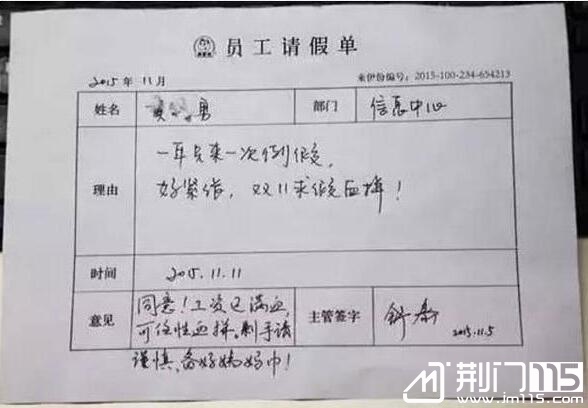 员工请假单
2015年11月
来伊份编号：2015-100-234-654213
姓名
男
部门
信息中心
理由
一年只来一次例假，
好紧张，双11求假血拼！
时间
2015.11.11
意见
同意！工资已满血，
可任性血拼。剁手请
谨慎，备好妈妈巾！
主管签字
2015.11.5
荆门115
www.jm115.com